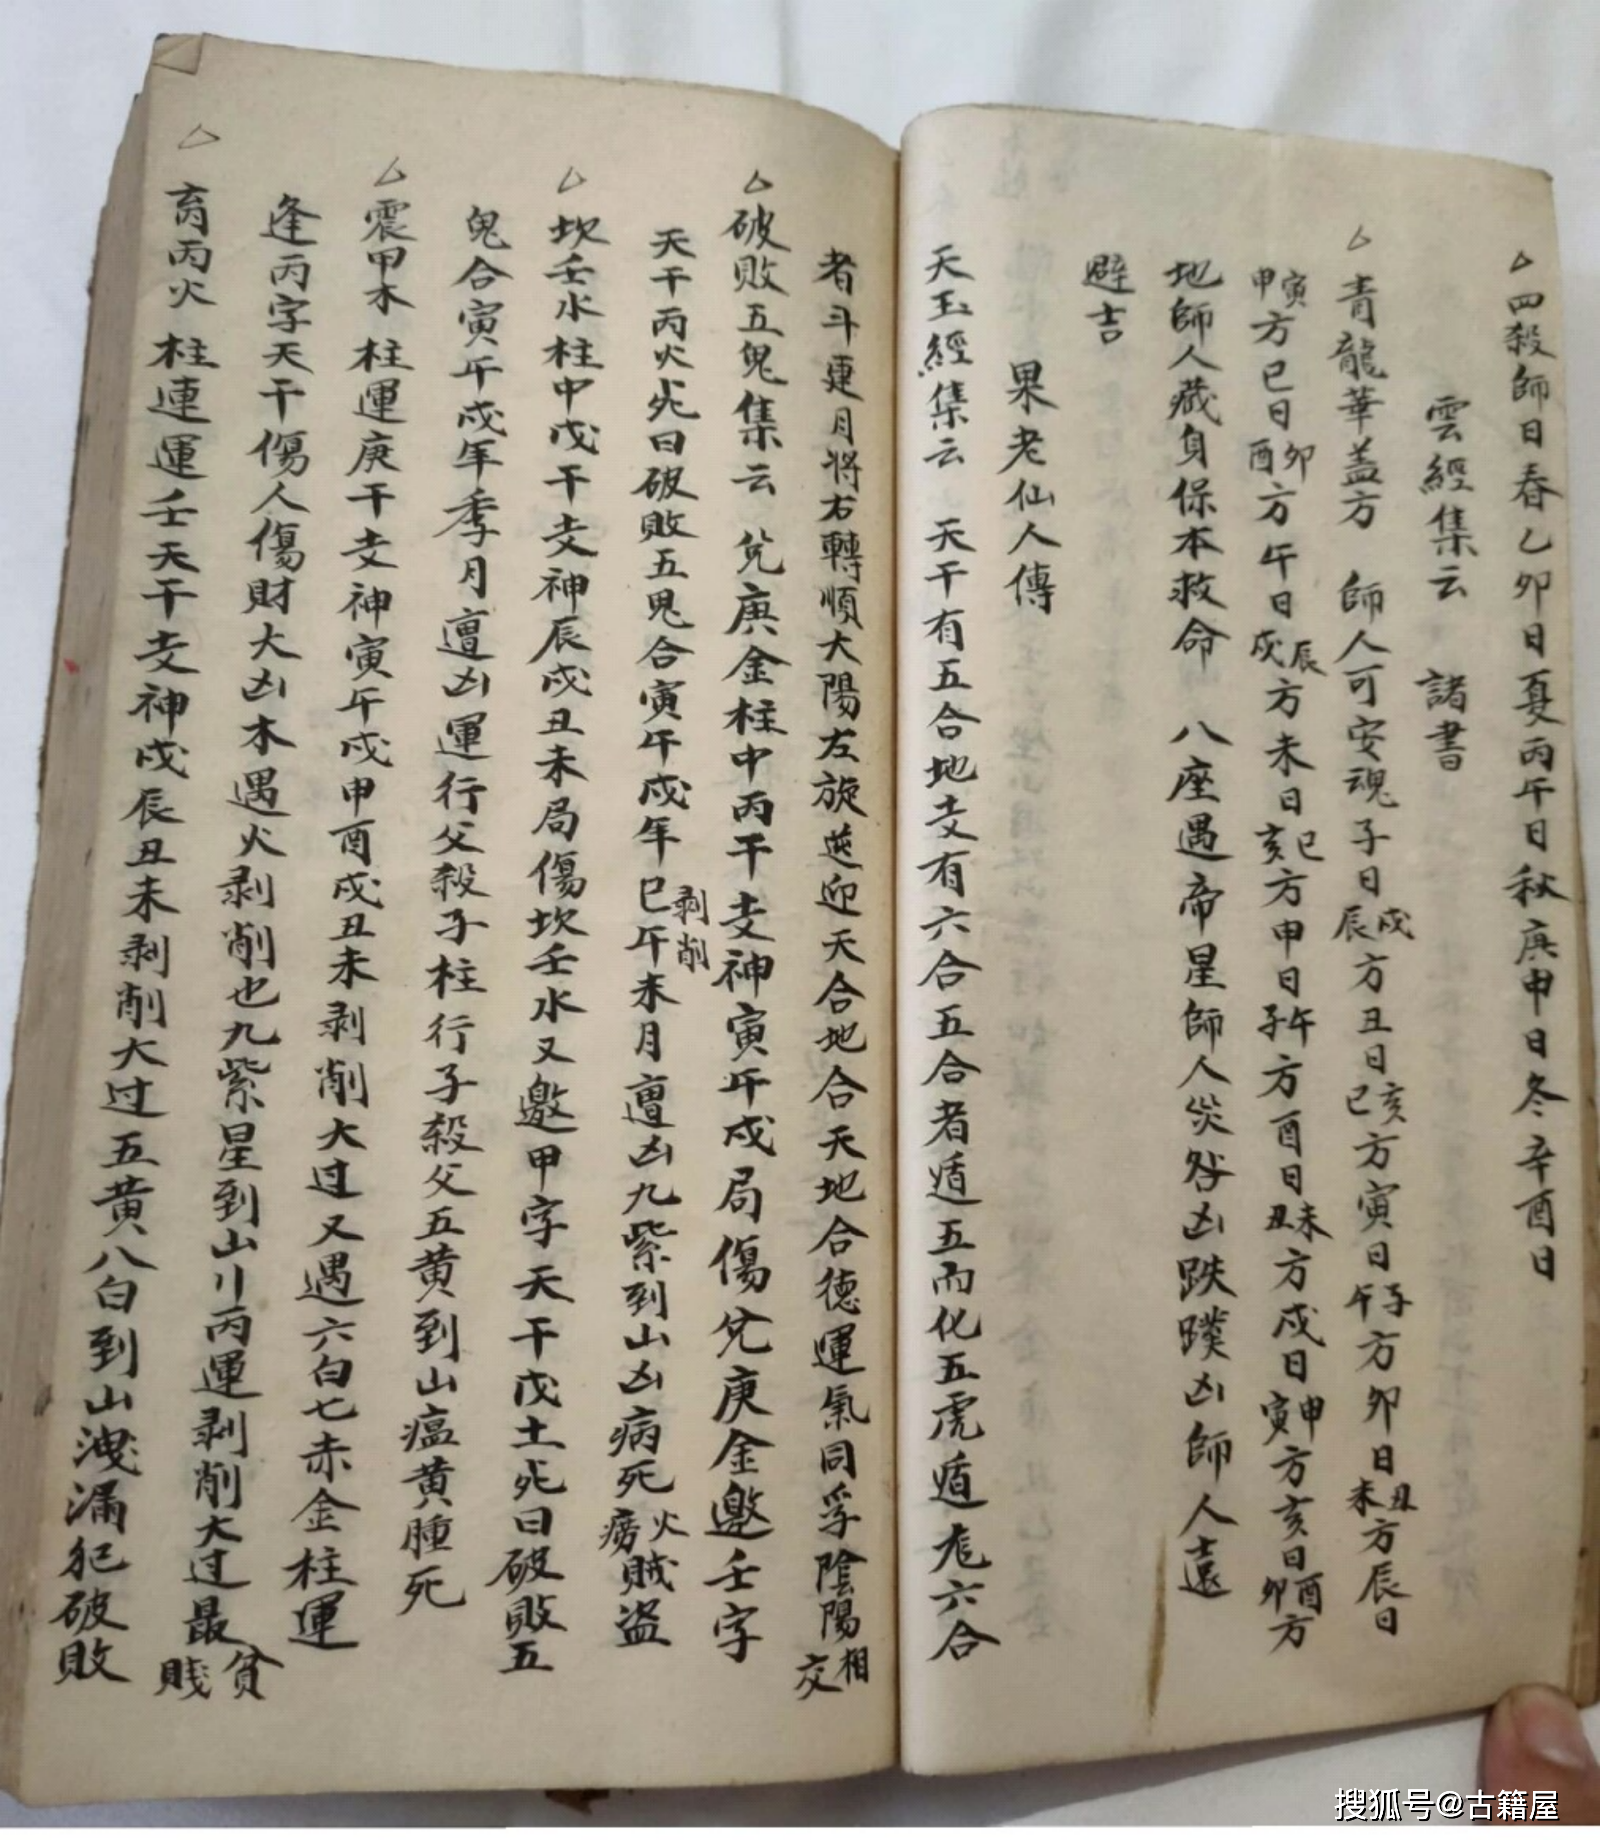 四殺師日春乙卯日夏丙午日秋庚申日冬辛酉日
雲經集云 諸書
青龍華蓋方 師人可安魂子日戌辰方丑日亥巳方寅日子午方卯日丑未方辰日
寅甲方巳日卯酉方午日辰戌方未日巳亥方申日午子方酉日未丑方戌日申寅方亥日酉卯方
地師人藏身保本救命 八座遇帝星師人災咎凶跌蹼凶師人遠
避吉
果老仙人傳
天玉經集云 天干有五合地支有六合五合者遁五而化五虎遁尨六合
者斗建月將右轉順大陽左旋迎天合地合天地合德運氣同孚陰陽相交
破敗五鬼集云 兌庚金柱中丙干支神寅午戌局傷兌庚金邀壬字
天干丙火死曰破敗五鬼合寅午戌年巳午未月剥削遭凶九紫到山凶病死火癆賊盜
坎壬水柱中戊干支神辰戌丑未局傷坎壬水又邀甲字天干戊土死曰破敗五
鬼合寅午戌年季月遭凶運行父殺子柱行子殺父五黄到山瘟黄腫死
震甲木柱運庚干支神寅午戌申酉戌丑未剥削大过又遇六白七赤金柱運
逢丙字天干傷人傷財大凶木遇火剥削也九紫星到山丨丙運剥削大过最貧賤
丙火柱連運壬天干支神戌辰丑未剥削大过五黄八白到山洩漏犯破敗
搜狐号@古籍屋